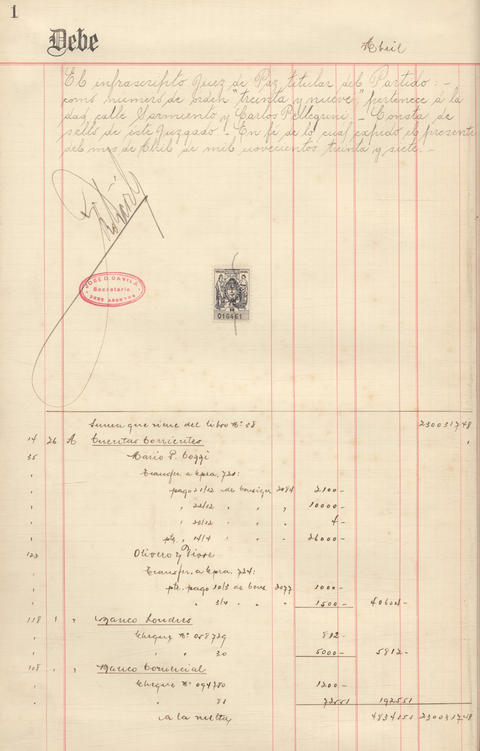 1
Debe
Abril
El infrascripto Juez de Paz titular del Partido: -
como numero de orden "treinta y nueve", pertenece á la
dad, calle Sarmiento y Carlos Pellegrini. - Consta de
sello de este Juzgado. - En fé de lo cual expido el presente
del mes de Abril de mil novecientos treinta y siete. -
JOSE D. DAVILA
Secretario
016461
Suma que viene del libro Nº 38 230031748
14 26 A Cuentas Corrientes
35 Mario P. Boggi
Transfer. a Gpra. 724:
pago 21/12 de 2084 2100-
" 22/12 " " " 10000-
" 22/12 " " 4-
" 14/4 " " 26000-
123 Olivero y
Transfer. a Gpra. 724:
pago 10/3 de 2077 1000-
" 3/4 " " 1500- 40604-
118 " " Banco Londres
Cheque Nº 058729 812-
" " 30 5000- 5812-
108 " " Banco Comercial
Cheque Nº 094780 1200-
" " 81 192551
a la vuelta 230031748